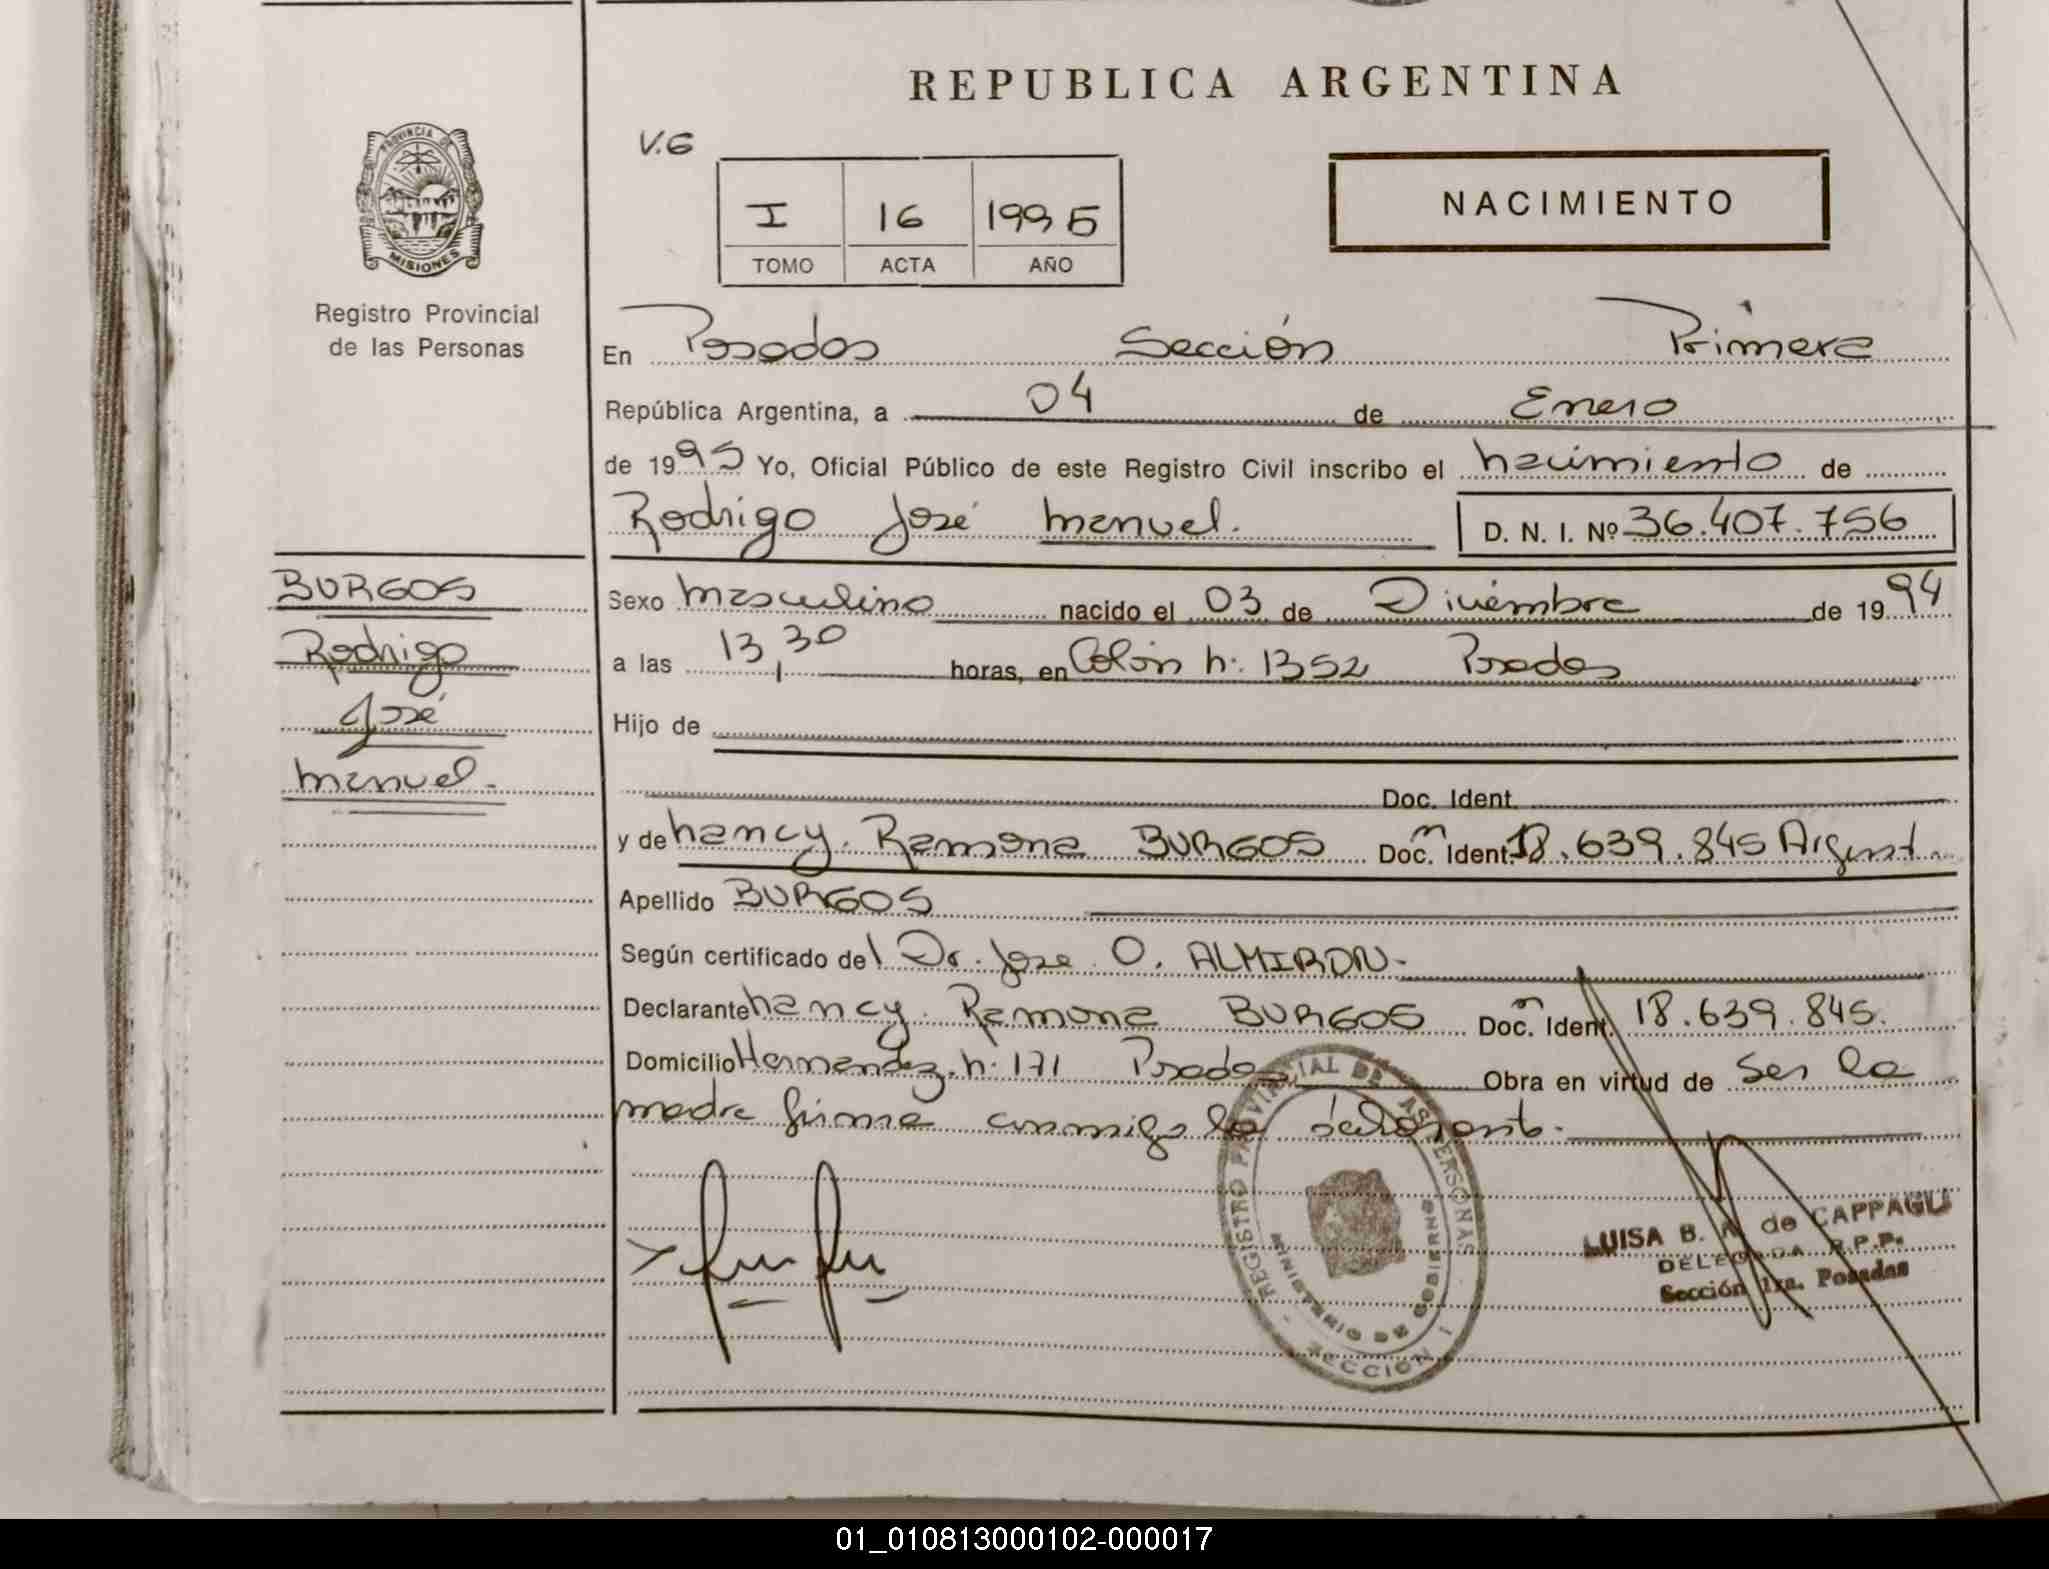 REPUBLICA ARGENTINA
PROVINCIA DE
MISIONES
Registro Provincial
de las Personas
V.G
NACIMIENTO
I 16 1995
TOMO ACTA AÑO
En Posadas Sección Primera
República Argentina, a 04 de Enero
de 1995 Yo, Oficial Público de este Registro Civil inscribo el nacimiento de
Rodrigo José Manuel. D. N. I. Nº 36.407.756
BURGOS
Rodrigo
José
Manuel.-
Sexo Masculino nacido el 03 de Diciembre de 1994
a las 13,30 horas, en Colón N: 1352 Posadas
Hijo de
Doc. Ident.
y de Nancy Ramona BURGOS Doc. Ident. 18.639.845 Argent.
Apellido BURGOS
Según certificado del Dr. Jose O. ALMIRON.-
Declarante Nancy Ramona BURGOS Doc. Ident. 18.639.845.
Domicilio Hernandez N: 171 Posadas Obra en virtud de ser la
madre firma conmigo la
REGISTRO PROVINCIAL DE LAS PERSONAS
MINISTERIO DE GOBIERNO
SECCIÓN 1
LUISA B. A. de CAPPAGLI
DELEGADA R.P.P.
Sección 1ra. Posadas
01_010813000102-000017